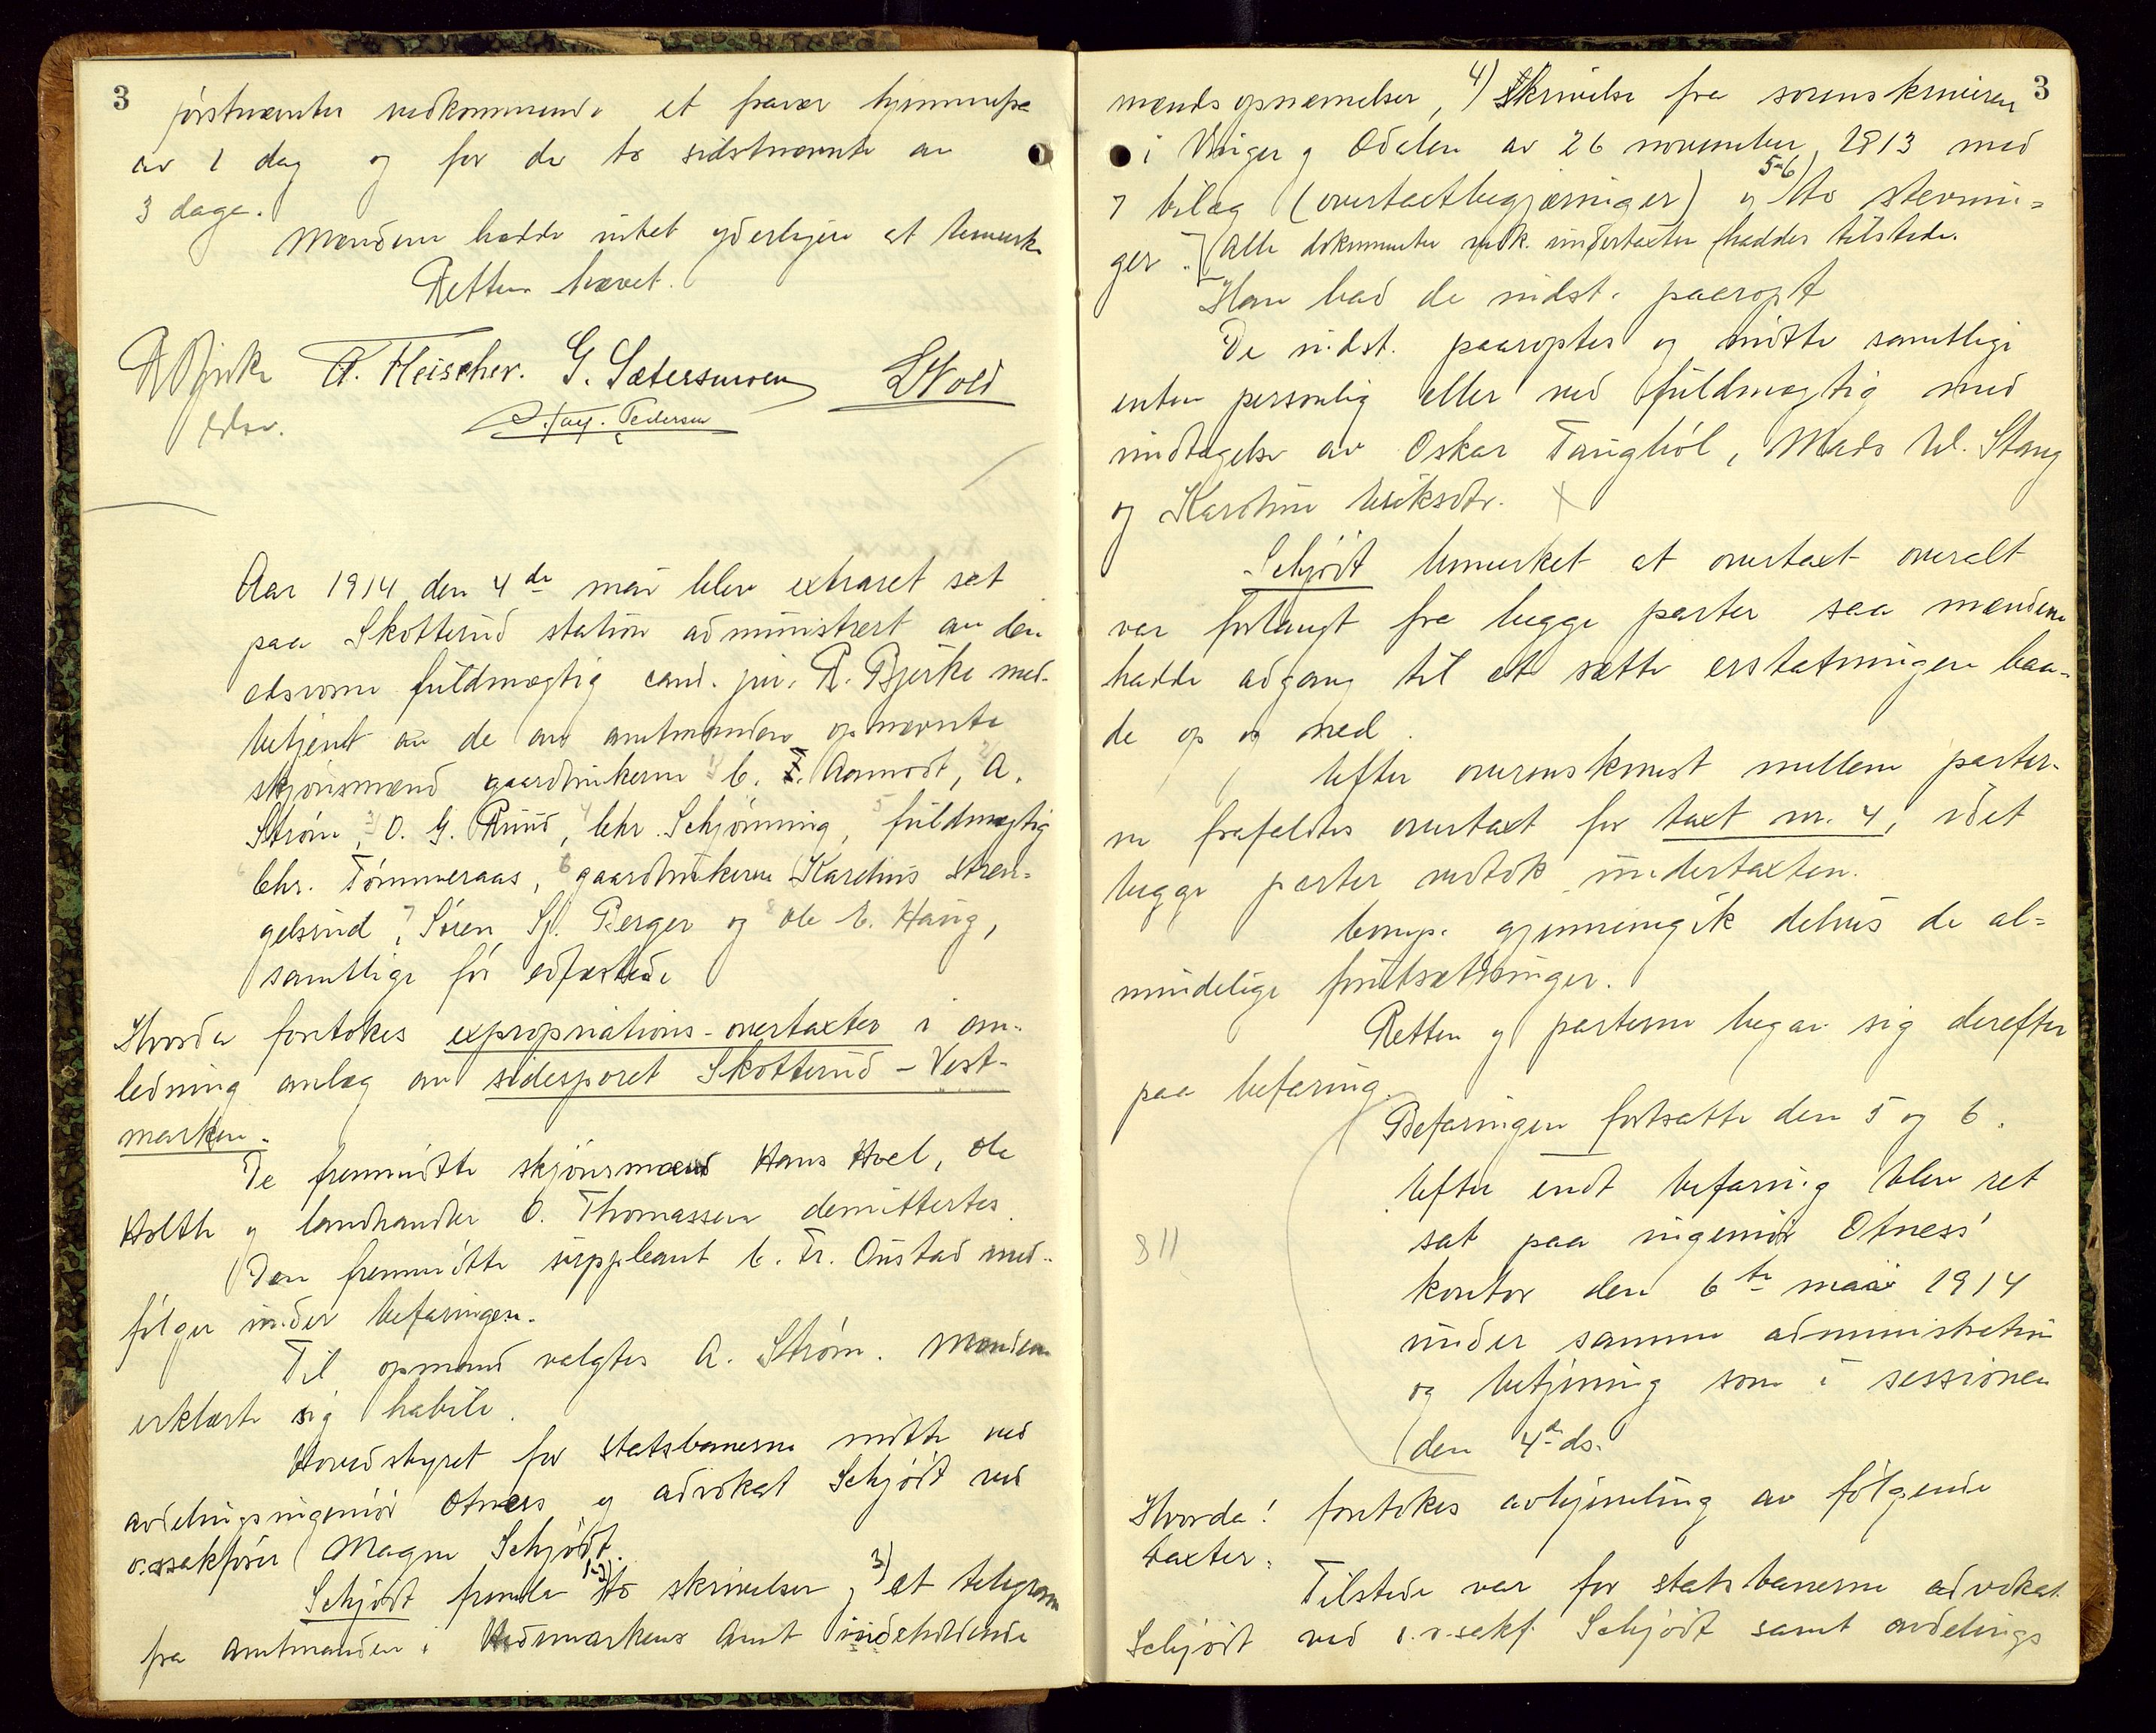 3
førstnævntes vedkommende et fravær hjemmefra
av 1 dag og for de to sidstnævnte av
3 dage.
Mændene hadde intet yderligere at bemerke
Retten hævet.
R Bjerke A. Fleischer. G. Sætersmoen LWold
edsv.
Aug. Pedersen
Aar 1914 den 4de mai blev extraret sat
paa Skotterud station administrert av den
edsvorne fuldmægtig cand. jur. R. Bjerke med-
betjent av de av amtmanden opnævnte
skjønsmænd gaardbrukerne 1) C. F. Aamodt, 2) A.
Strøm, 3) O. G. Ruud, 4) Chr. Schjønning, 5 fuldmægtig
Chr. Tømmeraas, 6 gaardbrukerne Karelius Stren-
gelsrud, 7 Søren Sj. Berger og 8 Ole C. Haug,
samtlige før edfæstede
Hvorda foretokes expropriations-overtaxter i an-
ledning anlæg av sidesporet Skotterud – Vest-
marken.
De fremmøtte skjønsmænd Hans Hoel, Ole
Holth og landhandler O. Thomassen demittertes.
Den fremmøtte suppleant C. Fr. Onstad med-
følger under befaringen.
Til opmand valgtes A. Strøm. Mændene
erklærte sig habile.
Hovedstyret for Statsbanerne møtte ved
avdelingsingeniør Otness og advokat Schjødt ved
o.r.sakfører Magne Schjødt.
Schjødt fremla 1-2) to skrivelser, 3) et telegram
fra Amtmanden i Hedemarkens Amt indeholdende
3
mænds opnævnelser, 4) Skrivelse fra sorenskriveren
i Vinger og Odalen av 26 november 1913 med
7 bilag (overtaxtbegjæringer) og 5-6) to stevnin-
ger. Alle dokumenter vedk. undertaxten haddes tilstede.
Han bad de indst. paaropt
De indst. paaroptes og møtte samtlige
enten personlig eller ved fuldmægtig med
undtagelse av Oskar Taugbøl, Mads W. Stang
og Karoline Eriksdtr.
Schjødt bemerket at overtaxt overalt
var forlangt fra begge parter saa mændene
hadde adgang til at sætte erstatningen baa-
de op og ned.
Efter overenskomst mellem parter-
ne frafaldtes overtaxt for taxt nr. 4, idet
begge parter vedtok undertaxten.
Comp. gjennemgik delvis de al-
mindelige forutsætninger.
Retten og parterne begav sig derefter
paa befaring.
Befaringen fortsatte den 5 og 6.
Efter endt befaring blev ret
sat paa ingeniør Otness'
kontor den 6te mai 1914
under samme administration
og betjening som i sessionen
den 4de ds.
811
Hvorda! foretokes avhjemling av følgende
taxter:
Tilstede var for statsbanerne advokat
Schjødt ved o.r.sakf. Schjødt samt avdelings